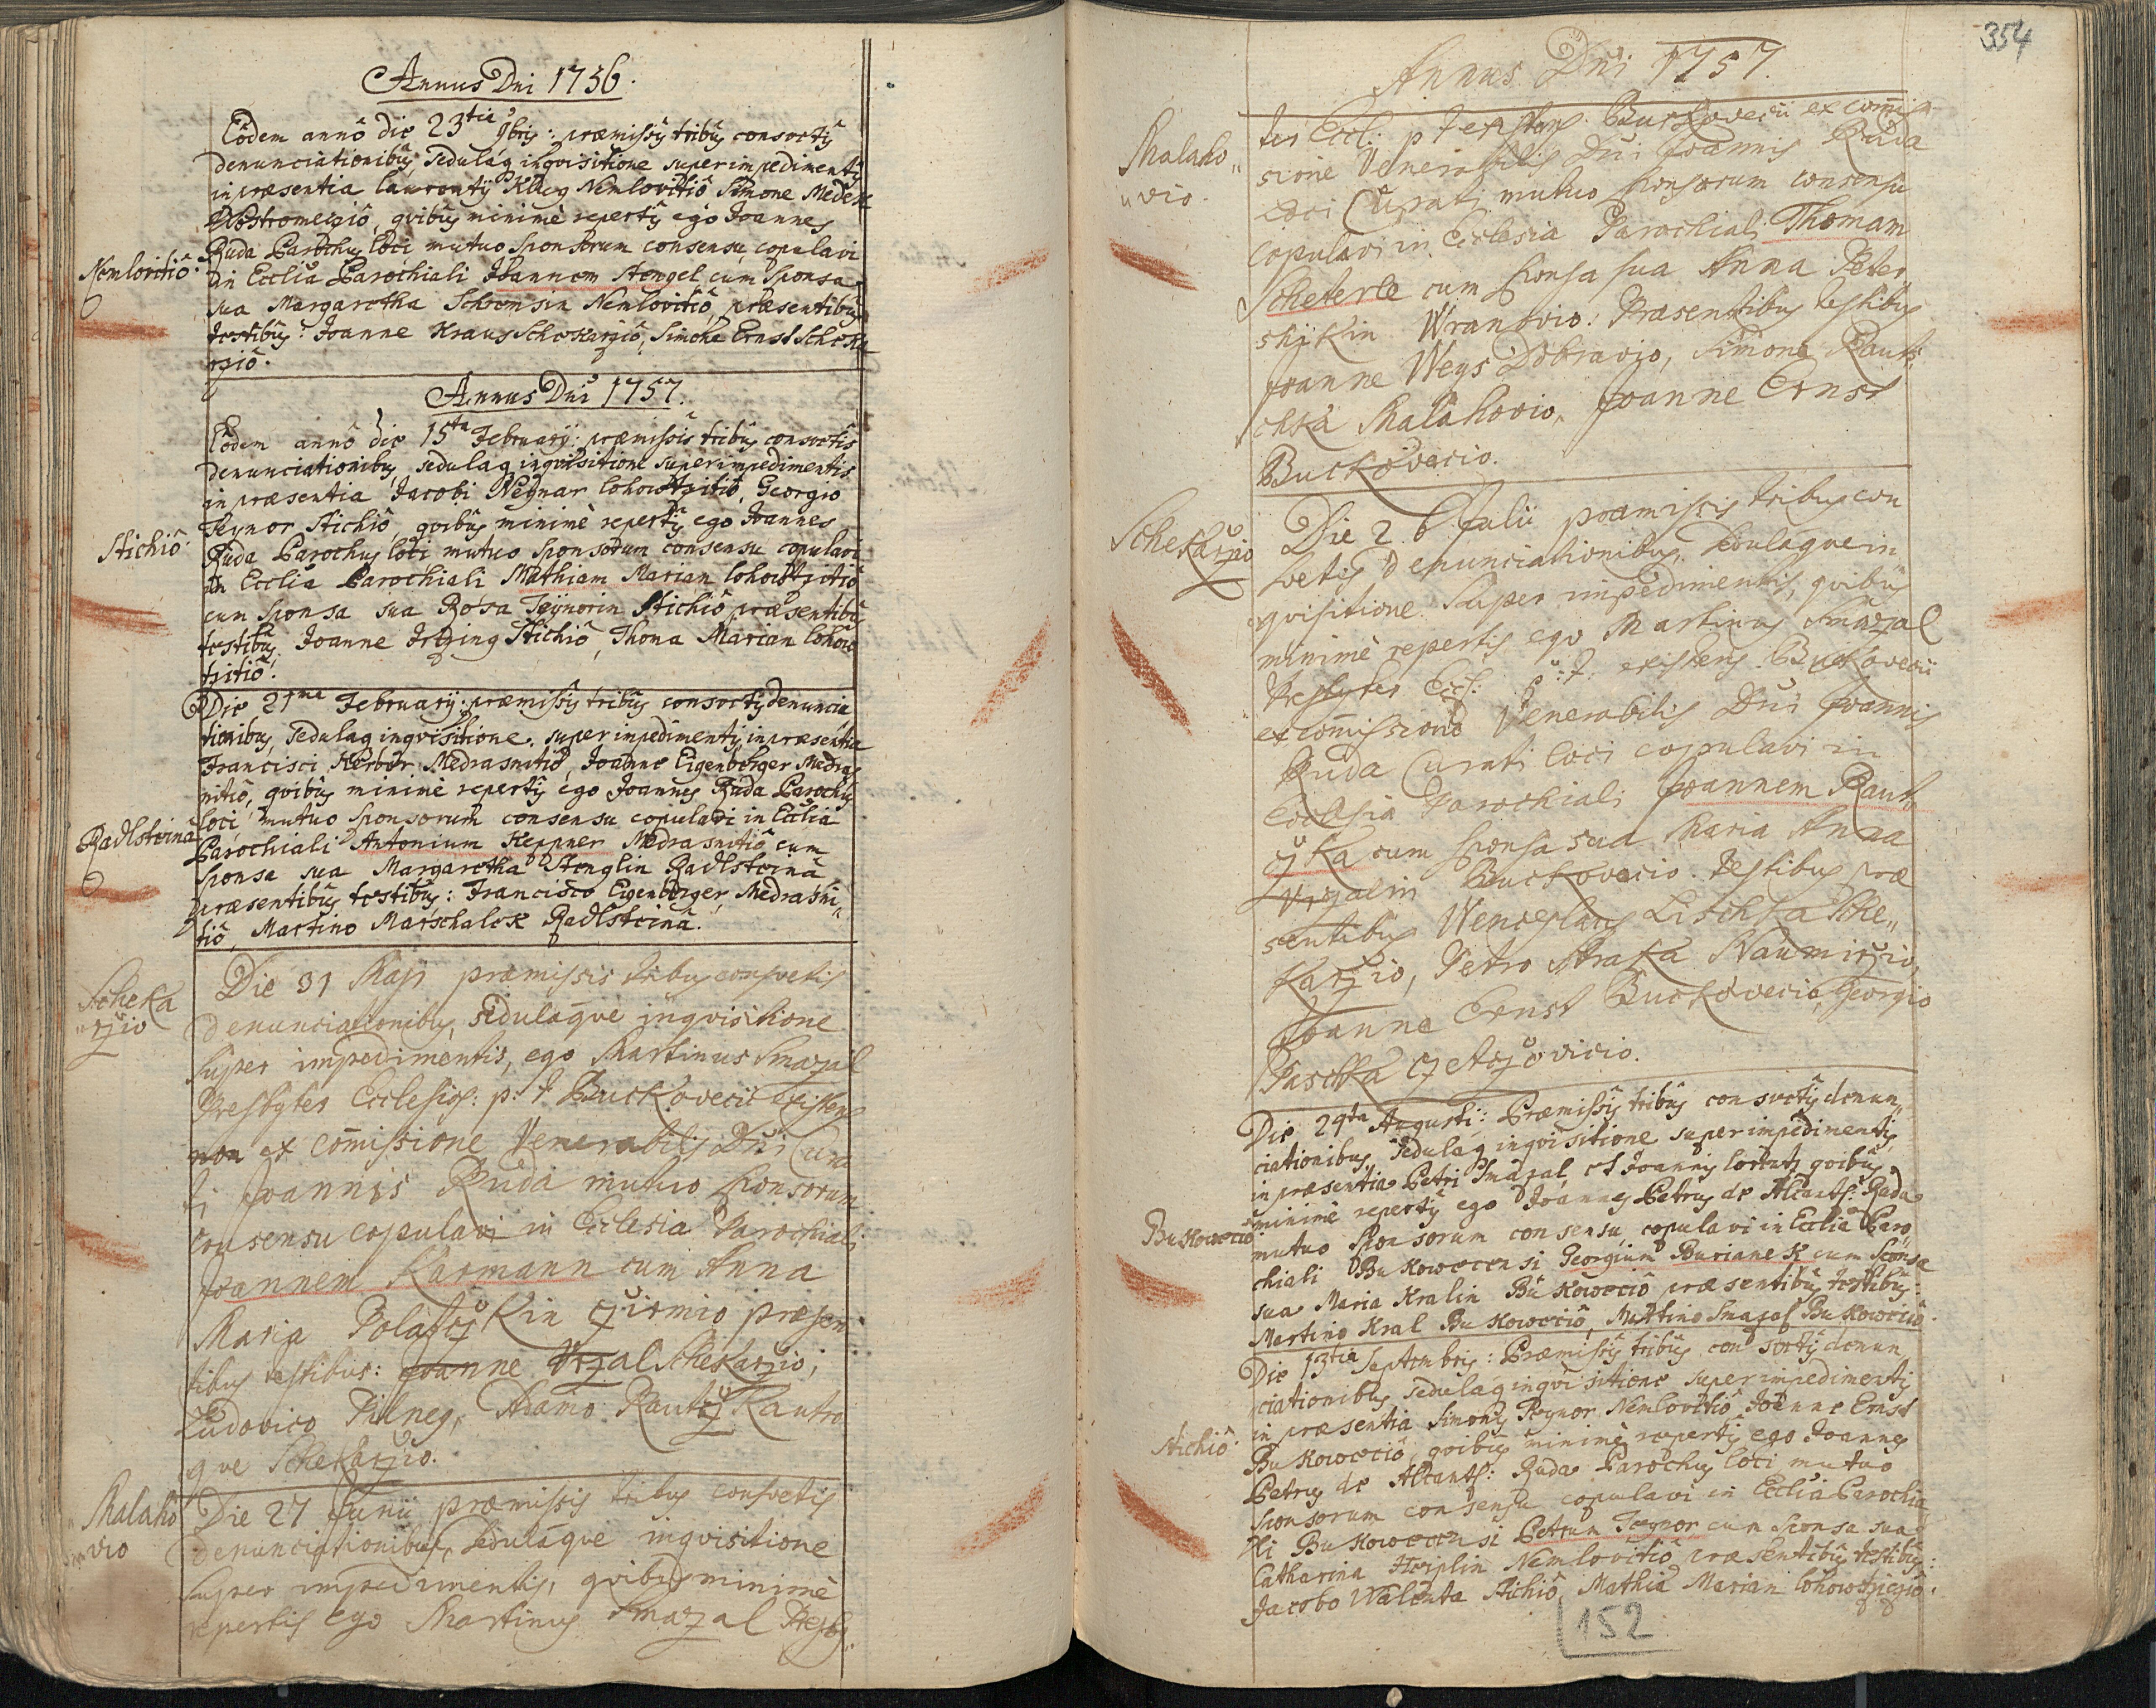 Annus Dni 1756.
Eôdem annô die 23tia 9bris: præmissis tribus consvetis
denunciationibus, sedulaq inqvisitione super impedimentis
in præsentia Laurentÿ Nemlovitiô Simone
qvibus minimè repertis ego Joannes
Ruda Parochus loci, mutuo Sponsorum consensu, copulavi
Nemlovitiô.
in Ecclia Parochiali Joannem Stengel cum Sponsa
sua Margaretha Nemlovitiô, præsentibus
testibus: Joanne Kraus Schekarziô, Simone Ernst Scheka
rziô.
Annus Dni 1757.
Eôdem annô die 15ta February: præmissis tribus consvetis
denunciationibus, sedulaq inqvisitione super impedimentis
in præsentia Jacobi Georgio
Teynor Stichiô, qvibus minimè repertis ego Joannes
Stichiô.
Ruda Parochus loci mutuo Sponsorum consensu copulavi
in Ecclia Parochiali Mathiam Marian Lohowtzitiô
cum Sponsa sua Rosa Teÿnorin Stichiô præsentibus
testibus, Joanne Stichiô, Thoma Marian Lohow
tzitiô.
Die 21ma February: præmissis tribus consvetis denuncia
tionibus, sedulaq inqvisitione, super impedimentis, in præsentia
Francisci Körber Medrasnitiô, Joanne Eigenberger Medras
nitiô, qvibus minimè repertis ego Joannes Ruda Parochus
loci, mutuo Sponsorum consensu copulavi in Ecclia
Radlsteinâ
Parochiali Antonium Keppner Medrasnitiô cum
Sponsa sua Margaretha Stenglin Radlsteinâ
præsentibus testibus: Francisco Eigenberger Medrasni„
tiô, Martino Marschalek Radlsteinâ.
Scheka
„rzio
Die 31 Maji præmissis tribus consvetis
denunciationibus, sedulâqve inqvisitione
super impedimentis, ego Martinus Smazal
Presbyter Ecclesios: p: t Buckovecii existens
non ex comissione Venerabilis Dni Cura
ti Joannis Ruda mutuo sponsorum
consensu copulavi in Ecclesia Parochiali
Joannem Karmann cum Anna
Maria præsen
tibus testibus: Joanne Vrzal Schekarzio,
Ludovico Pilney, Adamo
qve Schekarzio.
Malaho
„vio
Die 27 Junii præmissis tribus consvetis
denunciationibus, sedulâqve inqvisitione
super impedimentis, qvibus minimè
repertis ego Martinus Smazal Presby„
354
Annus Dni 1757.
ter Eccl: p t existens Buckovecii ex comis
Malaho„
„vio.
sione Venerabilis Dni Joannis Ruda
loci Curati mutuo sponsorum consensu
copulavi in Ecclesia Parochiali Thomam
Scheterle cum sponsa sua Anna Peter
schikin Wranovio. Præsentibus testibus
Joanne Weys Dobravio, Simone Raut„
chka Malahovio, Joanne Ernst
Buckovecio.
Schekarzio
Die 26 Julii præmissis tribus con
svetis denunciationibus, sedulâqve in
qvisitione super impedimentis, qvibus
minimè repertis ego Martinus Smazal
Presbyter Eccl: p: t. existens Buckovecii
ex comissione Venerabilis Dni Joannis
Ruda Curati loci copulavi in
Ecclesia Parochiali Joannem Raut„
zka cum sponsa sua Maria Anna
Vrzalin Buckovecio. Testibus præ
sentibus Wenceslaus Lischka Sche„
karzio, Petro Straka Naumirzio,
Joanne Ernst Buckovecio, Georgio
Paschka
Die 29ta Augusti: Præmissis tribus consvetis denun„
ciationibus, sedulaq inqvisitione super impedimentis,
in præsentia Petri Smazal, et Joannis qvibus
minimè repertis ego Joannes Petrus de Alcant: Ruda
Bukowecio
mutuo Sponsorum consensu, copulavi in Ecclia Paro„
chiali Bukowecensi Georgium Burianek cum Sponsa
sua Maria Kralin Bukoweciô præsentibus testibus:
Martino Kral Bukoweciô, Martino Smazal Bukoweciô.
Die 13tia Septembris: Præmissis tribus consvetis denun„
ciationibus sedulaq inqvisitione super impedimentis
in præsentia Simonis Teynor Nemlovitiô, Joanne Ernst
Stichiô.
Bukoweciô, qvibus minimè repertis ego Joannes
Petrus de Alcant: Ruda Parochus loci mutuo
Sponsorum consensu copulavi in Ecclia Parochia
li Bukowecensi Petrum Teynor cum Sponsa sua
Catharina Nemlovitiô præsentibus testibus:
Jacobo Walenta Stichiô, Mathia Marian
152